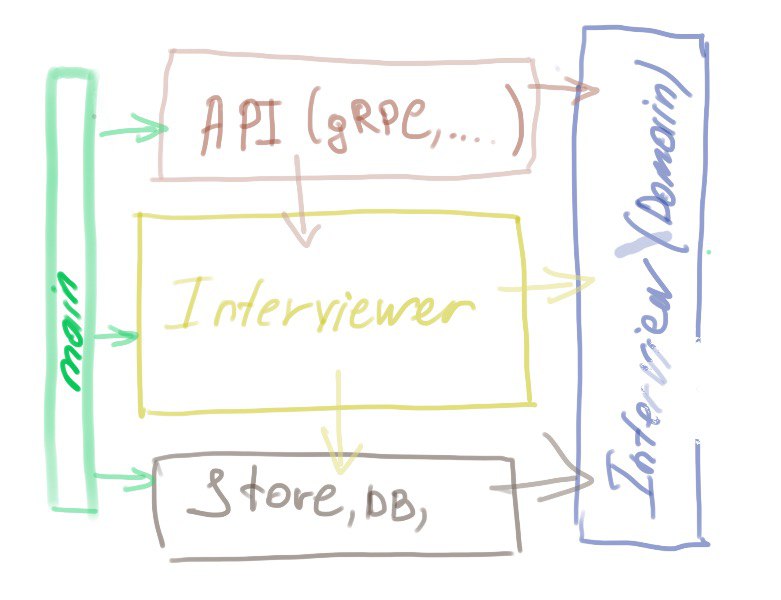 main
API (gRPC,....)
Interviewer
Store, DB,
Interview (Domain)